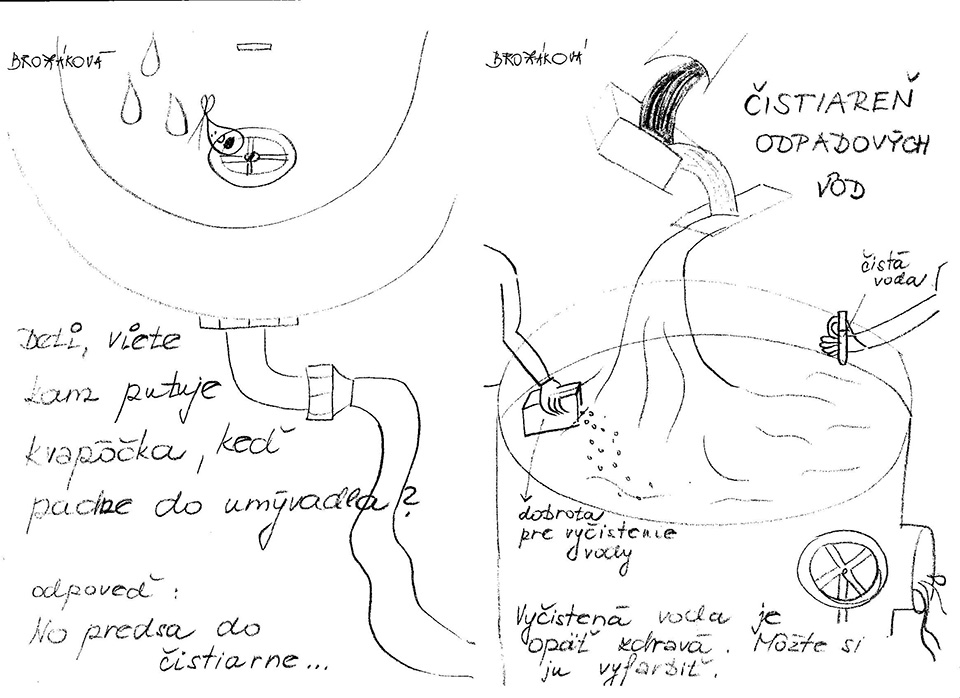 BROŽÁKOVÁ
Deti, viete
kam putuje
kvapôčka, keď
padne do umývadla?
odpoveď:
No predsa do
čistiarne...
BROŽÁKOVÁ
ČISTIAREŇ
ODPADOVÝCH
VÔD
čistá
voda
dobrota
pre vyčistenie
vody
Vyčistená voda je
opäť zdravá. Môžte si
ju vyfarbiť.